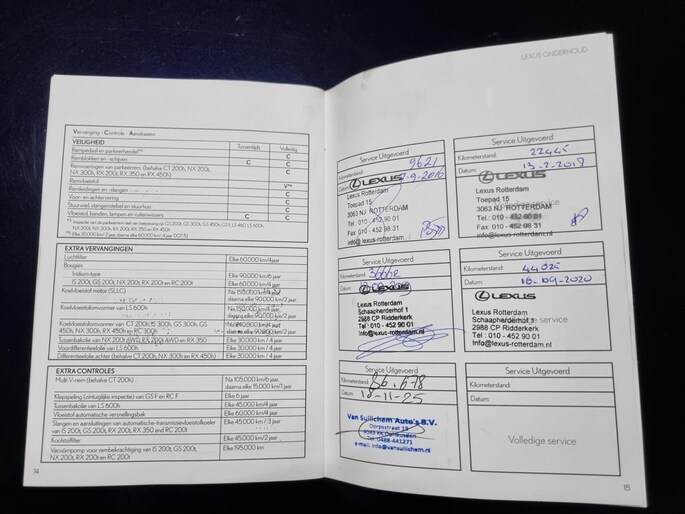 Vervanging - Controle - Aandraaien
VEILIGHEID
Tussentijds
Volledig
Rempedaal en parkeerhendel
C
Remblokken en -schijven
C
C
Remvoeringen van parkeerrem (behalve CT 200h, NX 200t,
NX 300h, RX 200t, RX 350 en RX 450h)
C
Remvloeistof
Remleidingen en -slangen
C
Voor- en achtervering
C
Stuurwiel, stangenstelsel en stuurhuis
C
Vloeistof, banden, lampen en ruitenwissers
C
C
EXTRA VERVANGINGEN
Luchtfilter
Elke 60.000 km/4jaar
Bougies
Iridium-type
Elke 90.000 km/6 jaar
IS 200t, GS 200t, NX 200t, RX 200t en RC 200t
Elke 60.000 km/4 jaar
Koelvloeistof motor (SLLC)
Na 150.000 km/
daarna elke 90.000 km/
Koelvloeistofomvormer van LS 600h
Koelvloeistofomvormer van CT 200h, IS 300h, GS 300h, GS
450h, NX 300h, RX 450h en RC 300h
Tussenbakolie van NX 200t AWD, RX 200t AWD en RX 350
Elke 30.000 km / 4 jaar
Voordifferentieelolie van LS 600h
Elke 30.000 km / 4 jaar
Differentieelolie achter (behalve CT 200h, NX 300h en RX 450h)
Elke 30.000 km / 4 jaar
EXTRA CONTROLES
Multi V-riem (behalve CT 200h)
Na 105.000 km/6 jaar,
daarna elke 15.000 km/1 jaar
Klepspeling (zintuiglijke inspectie) van GS F en RC F
Elke 6 jaar
Tussenbakolie van LS 600h
Elke 45.000 km/4 jaar
Vloeistof automatische versnellingsbak
Elke 60.000 km/4 jaar
Slangen en aansluitingen van automatische-transmissievloeistofkoeler
van IS 200t, GS 200t, RX 200t, RX 350 and RC 200t
Elke 45.000 km / 3 jaar
Koolstoffilter
Elke 45.000 km/2 jaar
Vacuümpomp voor rembekrachtiging van IS 200t, GS 200t,
NX 200t, RX 200t en RC 200t
Elke 195.000 km
14
LEXUS ONDERHOUD
Service Uitgevoerd
Kilometerstand: 9621
Datum: 7-9-2016
LEXUS
Lexus Rotterdam
Toepad 15
3063 NJ ROTTERDAM
Tel.: 010 - 452 90 01
Fax: 010 - 452 98 31
info@lexus-rotterdam.nl
Service Uitgevoerd
Kilometerstand: 22445
Datum: 13-2-2019
LEXUS
Lexus Rotterdam
Toepad 15
3063 NJ ROTTERDAM
Tel.: 010 - 452 90 01
Fax: 010 - 452 98 31
info@lexus-rotterdam.nl
Service Uitgevoerd
Kilometerstand:
Datum:
LEXUS
Lexus Rotterdam
Schaapherderhof 1
2988 CP Ridderkerk
Tel : 010 - 452 90 01
Info@lexus-rotterdam.nl
Service Uitgevoerd
Kilometerstand: 44025
Datum:
LEXUS
Lexus Rotterdam
Schaapherderhof 1
2988 CP Ridderkerk
Tel : 010 - 452 90 01
Info@lexus-rotterdam.nl
Service Uitgevoerd
Kilometerstand: 86.678
Datum: 18-11-25
Van Sullichem Auto's B.V.
Dorpsstraat
Tel. 0488-441271
e-mail: info@vansullichem.nl
Service Uitgevoerd
Kilometerstand:
Datum:
Volledige service
15